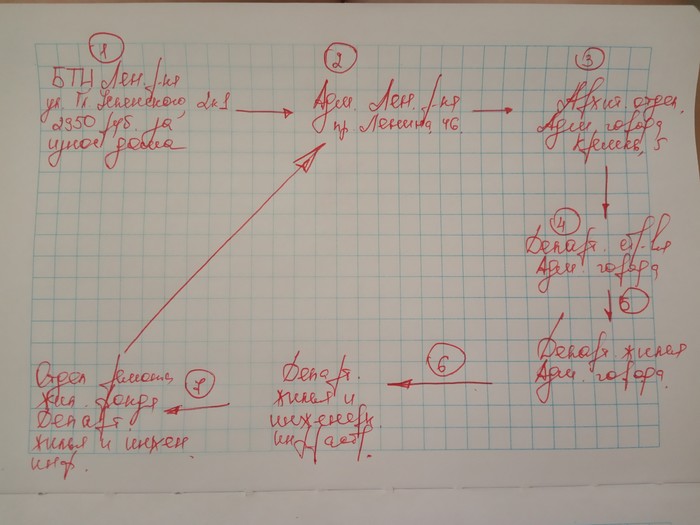 1
БТИ Лен. р-на
ул. Гл. Успенского, 2к1
2350 руб. за
износ дома
2
Адм. Лен. р-на
пр. Ленина, 46
3
Архит. отдел.
Адм. города
Кремль, 5
4
Департ. стр-ва
Адм. города
5
Департ. жилья
Адм. города.
6
Департ.
жилья и
инженерн.
инфраст.
7
Отдел ремонта
жил. фонда
Департ.
жилья и инжен.
инф.